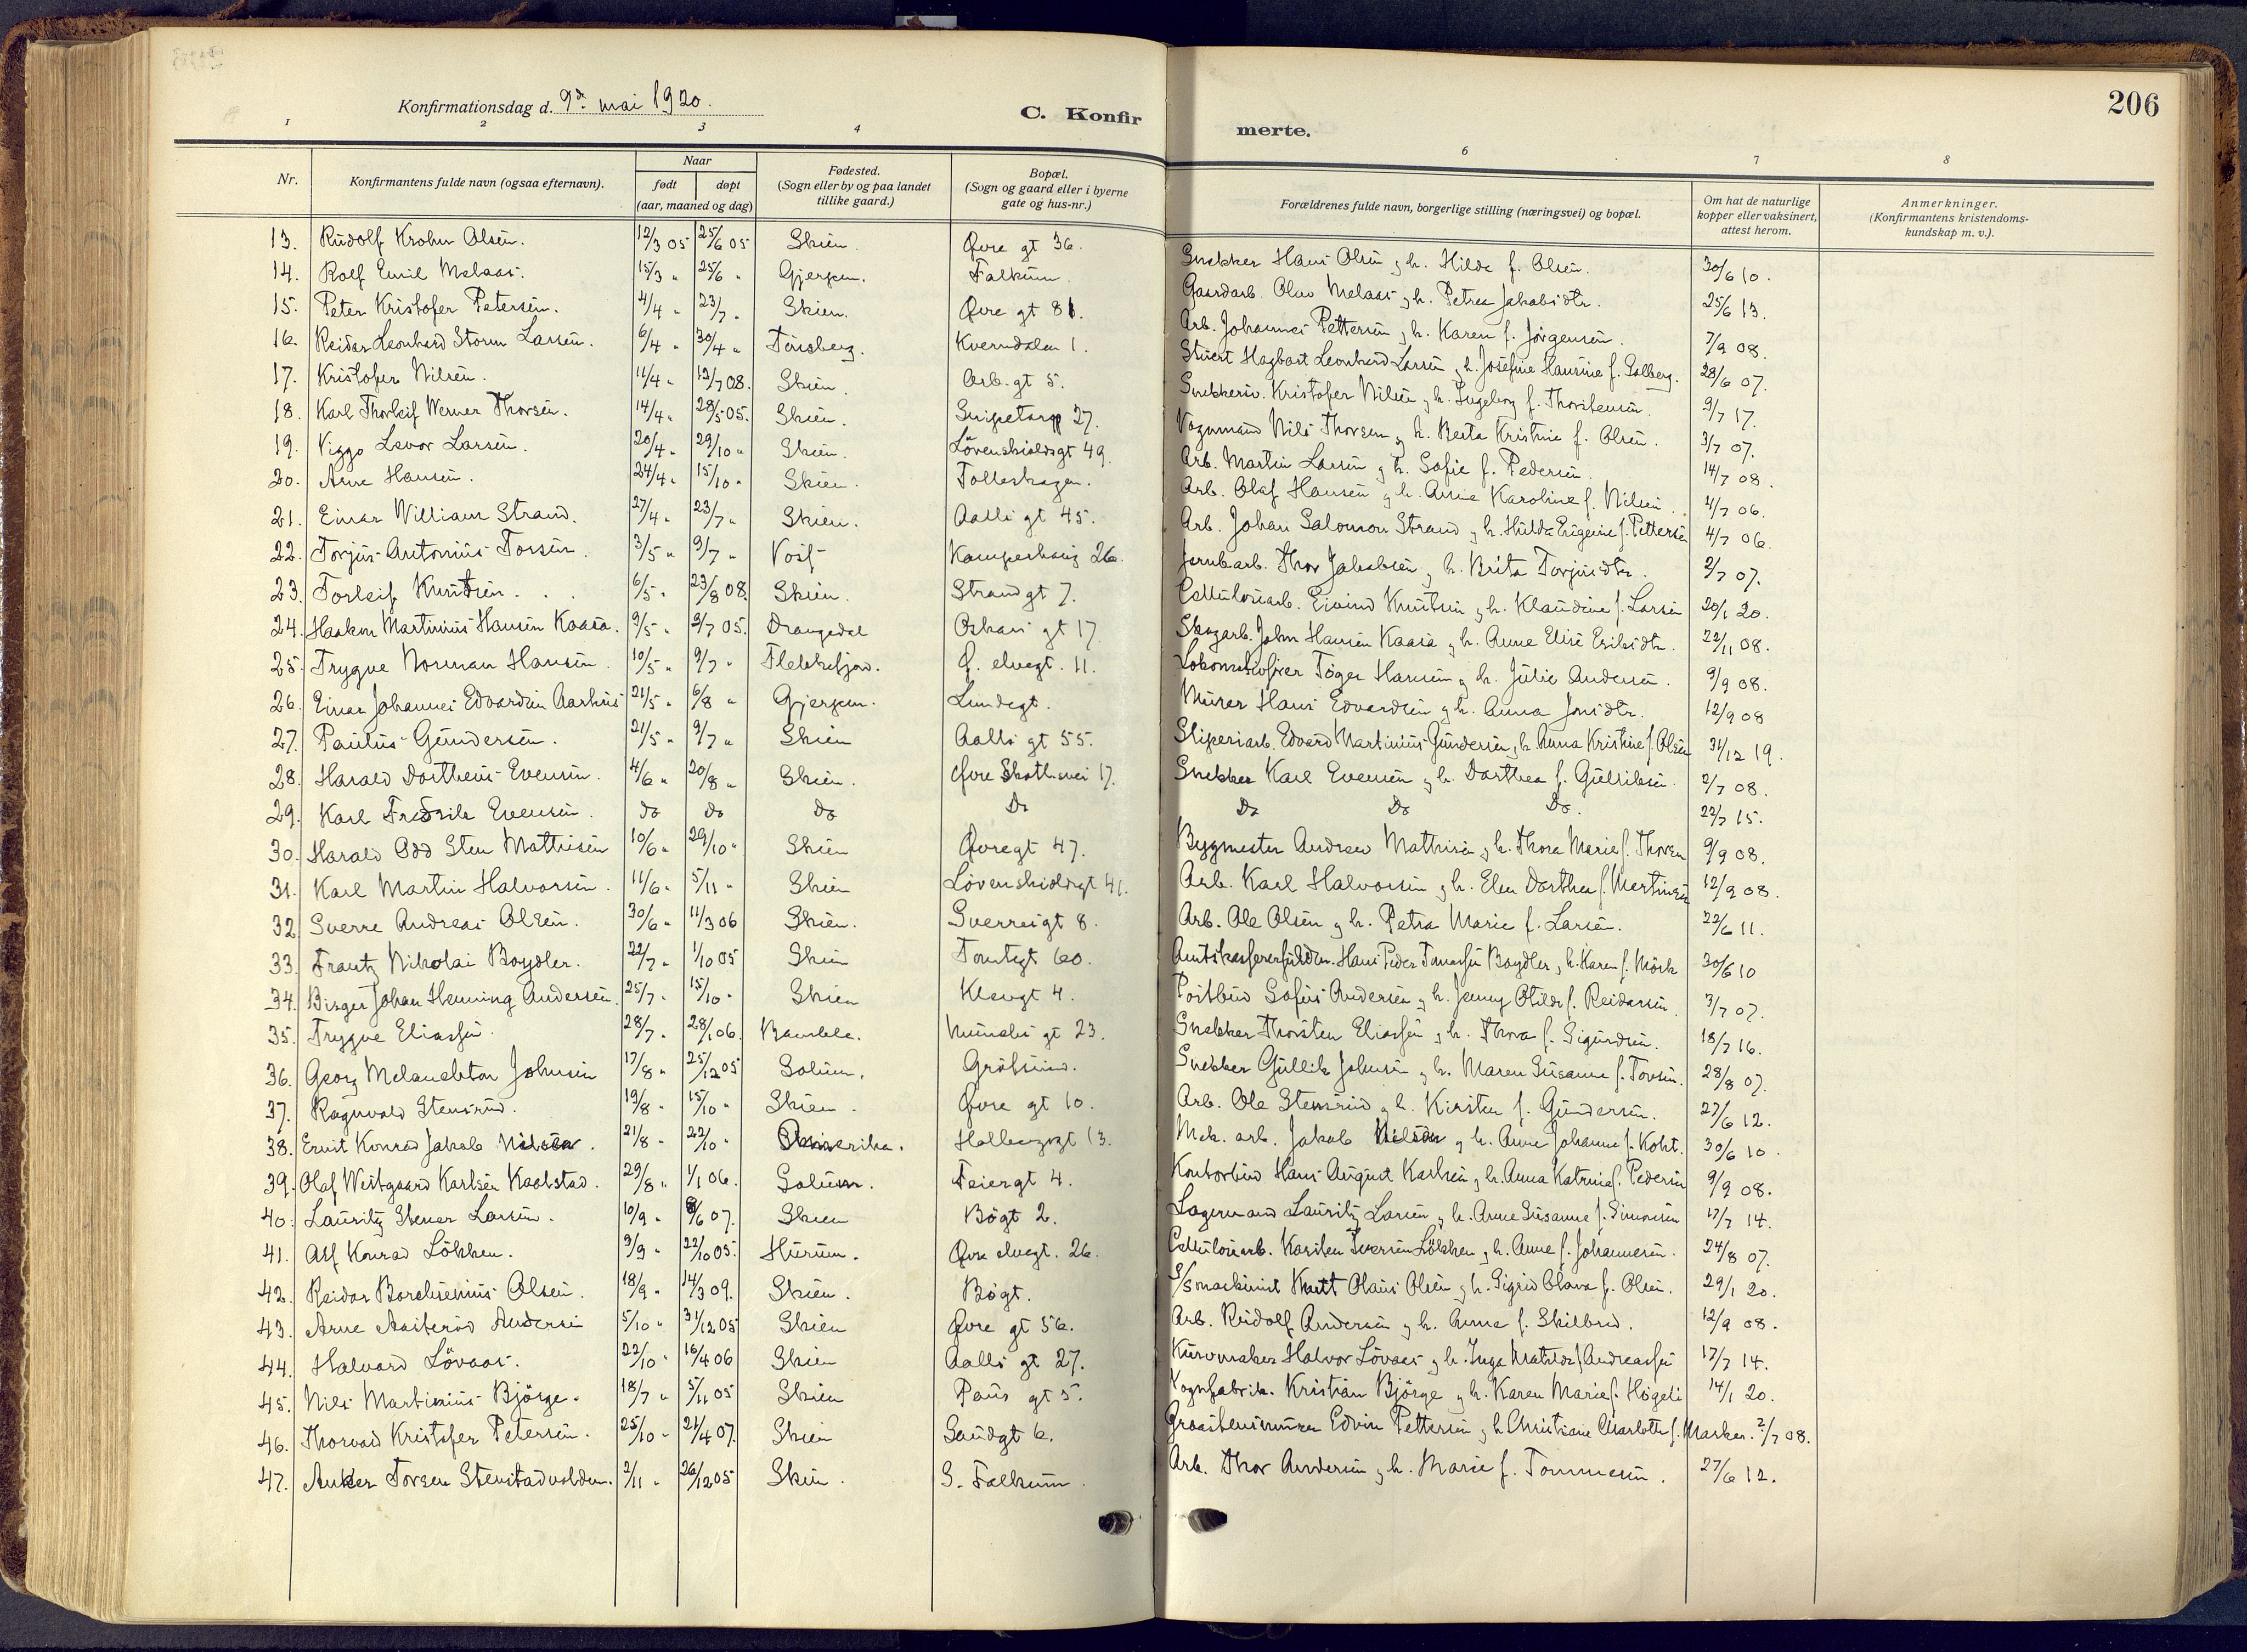 206
Konfirmationsdag d. 9de mai 1920.
C. Konfirmerte.
1 2 3 4 6 7 8
Nr. Konfirmantens fulde navn (ogsaa efternavn). Naar født døpt (aar, maaned og dag) Fødested. (Sogn eller by og paa landet tillike gaard.) Bopæl. (Sogn og gaard eller i byerne gate og hus-nr.) Forældrenes fulde navn, borgerlige stilling (næringsvei) og bopæl. Om hat de naturlige kopper eller vaksinert, attest herom. Anmerkninger. (Konfirmantens kristendoms-kundskap m. v.).
13. Rudolf Krohn Olsen. 12/3 05 25/6 05 Skien. Øvre gt 36. Snekker Hans Olsen g h. Hilda f. Olsen. 30/6 10.
14. Rolf Emil Melaas. 15/3 " 25/6 " Gjerpen. Falkum. Gaardarb. Olav Melaas g h. Petrea Jakobsdtr. 25/6 13.
15. Peter Kristofer Petersen. 4/4 " 23/7 " Skien. Øvre gt 81. Arb. Johannes Pettersen g h. Karen f. Jørgensen. 7/9 08.
16. Reidar Leonhard Storm Larsen. 6/4 " 30/4 " Tønsberg. Kverndalen 1. Stuert Hagbart Leonhard Larsen g h. Josefine Hansine f. Solberg. 28/6 07.
17. Kristofer Nilsen. 11/4 " 19/7 08. Skien. Arb. gt 5. Snekkersv. Kristofer Nilsen g h. Ingeborg f. Thorstensen. 9/7 17.
18. Karl Thorleif Werner Thorsen. 14/4 " 28/5 05. Skien. Snipetorp 27. Vognmand Nils Thorsen g h. Berta Kristine f. Olsen. 3/7 07.
19. Viggo Levor Larsen. 20/4 " 29/10 " Skien. Lövenskioldsgt 49. Arb. Martin Larsen g h. Sofie f. Pedersen. 14/7 08.
20. Arne Hansen. 24/4 " 15/10 " Skien. Folleskagen. Arb. Olaf Hansen g h. Anna Karoline f. Nilsen. 4/7 06.
21. Einar William Strand. 27/4 " 23/7 " Skien. Aalls gt 45. Arb. Johan Salomon Strand g h. Hulda Eugenie f. Pettersen 4/7 06.
22. Torjus Antonius Torsen. 3/5 " 9/7 " Voss Kamperhaug 26. Jernbarb. Thor Jakobsen g h. Brita Torjusdtr. 2/7 07.
23. Torleif Knutsen. 6/5 " 23/8 08. Skien. Strandgt 7. Cellulosearb. Eivind Knutsen g h. Klaudine f. Larsen 20/1 20.
24. Haakon Martinius Hansen Kaasa. 9/5 " 9/7 05. Drangedal Oskars gt 17. Skogarb. John Hansen Kaasa g h. Anne Elise Eriksdtr. 22/11 08.
25. Trygve Norman Hansen. 10/5 " 9/7 " Flekkefjord. Ø. elvegt. 11. Lokomotivfyrer Töger Hansen g h. Julie Andersen. 9/9 08.
26. Einar Johannes Edvardsen Aarhus 21/5 " 6/8 " Gjerpen. Lundegt. Murer Hans Edvardsen g h. Anna Jonsdtr. 12/9 08
27. Paulus Gundersen. 21/5 " 9/7 " Skien Aalls gt 55. Sliperiarb. Edvard Martinius Gundersen g h. Anna Kristine f. Olsen 31/12 19.
28. Harald Dortheus Evensen. 4/6 " 20/8 " Skien. Øvre Skotlivei 17. Snekker Karl Evensen g h. Dorthea f. Gulliksen. 2/7 08.
29. Karl Fredrik Evensen. Do Do Do Do Do Do Do. 22/7 15.
30. Harald Odd Sten Mathisen 10/6 " 29/10 " Skien Øvregt 47. Bygmester Andreas Mathisen g h. Thora Marie f. Thorsen 9/9 08.
31. Karl Martin Halvorsen. 11/6 " 5/11 " Skien Lövenskioldsgt 41. Arb. Karl Halvorsen g h. Elen Dorthea f. Martinsen 12/9 08.
32. Sverre Andreas Olsen. 30/6 " 11/3 06 Skien. Sverresgt 8. Arb. Ole Olsen g h. Petra Marie f. Larsen. 22/6 11.
33. Frantz Nikolai Boydler. 22/7 " 1/10 05 Skien Tomtegt 60. Amtskasserer Hans Peder Boydler g h. Karen f. Mörk 30/6 10
34. Birger Johan Henning Andersen. 25/7 " 15/10 " Skien Klevgt 4. Postbud Sofus Andersen g h. Jenny Otilde f. Reidarsen. 3/7 07.
35. Trygve Eliassen. 28/7 " 28/1 06. Bamble. Munks gt 23. Snekker Thorsten Eliassen g h. Thora f. Sigurdsen. 18/7 16.
36. Georg Melanchton Johnsen 17/8 " 25/12 05 Solum. Gråtsund. Snekker Gullik Johnsen g h. Maren Susanne f. Torsen. 28/8 07.
37. Ragnvald Stensrud. 19/8 " 15/10 " Skien. Øvre gt 10. Arb. Ole Stensrud g h. Kirsten f. Gundersen. 27/6 12.
38. Ernst Konrad Jakob Nilsen. 21/8 " 22/10 " Amerika. Holbergsgt 13. Mek. arb. Jakob Nilsen g h. Anne Johanne f. Koht. 30/6 10.
39. Olaf Westgaard Karlsen Kaalstad. 29/8 " 1/1 06. Solum. Feiergt 4. Kontorbud Hans August Karlsen g h. Anna Katrine f. Pedersen 9/9 08.
40. Lauritz Stener Larsen. 10/9 " 8/6 07. Skien Bögt 2. Lagermand Lauritz Larsen g h. Anne Susanne f. Simonsen 17/7 14.
41. Alf Konrad Lökken. 9/9 " 22/10 05. Hurum. Øvre elvegt. 26. Cellulosearb. Karsten Iversen Lökken g h. Anne f. Johannesen. 24/8 07.
42. Reidar Borchsenius Olsen. 18/9 " 14/3 09. Skien. Bögt. S/S maskinist Knutt Olaus Olsen g h. Sigrid Olava f. Olsen. 29/1 20.
43. Arne Aasteröd Andersen 5/10 " 31/12 05 Skien Øvre gt 56. Arb. Rudolf Andersen g h. Anna f. Skilbred. 12/9 08.
44. Halvard Lövaas. 22/10 " 16/4 06 Skien Aalls gt 27. Kurvmaker Halvor Lövaas g h. Inga Matilde f Andreassen 17/7 14.
45. Nils Martinius Björge. 18/7 " 5/11 05 Skien Paus gt 5. Vognfabrik. Kristian Björge g h. Karen Marie f. Högeli 14/1 20.
46. Thorvald Kristofer Petersen. 25/10 " 21/4 07. Skien Sandgt 6. Graastensmurer Edvin Pettersen g h Christiane Charlotte f. Marker. 2/7 08.
47. Anker Torsen Stenstadvolden. 2/11 " 26/12 05 Skien. S. Falkum. Arb. Thor Andersen g h. Marie f. Tommesen. 27/6 12.